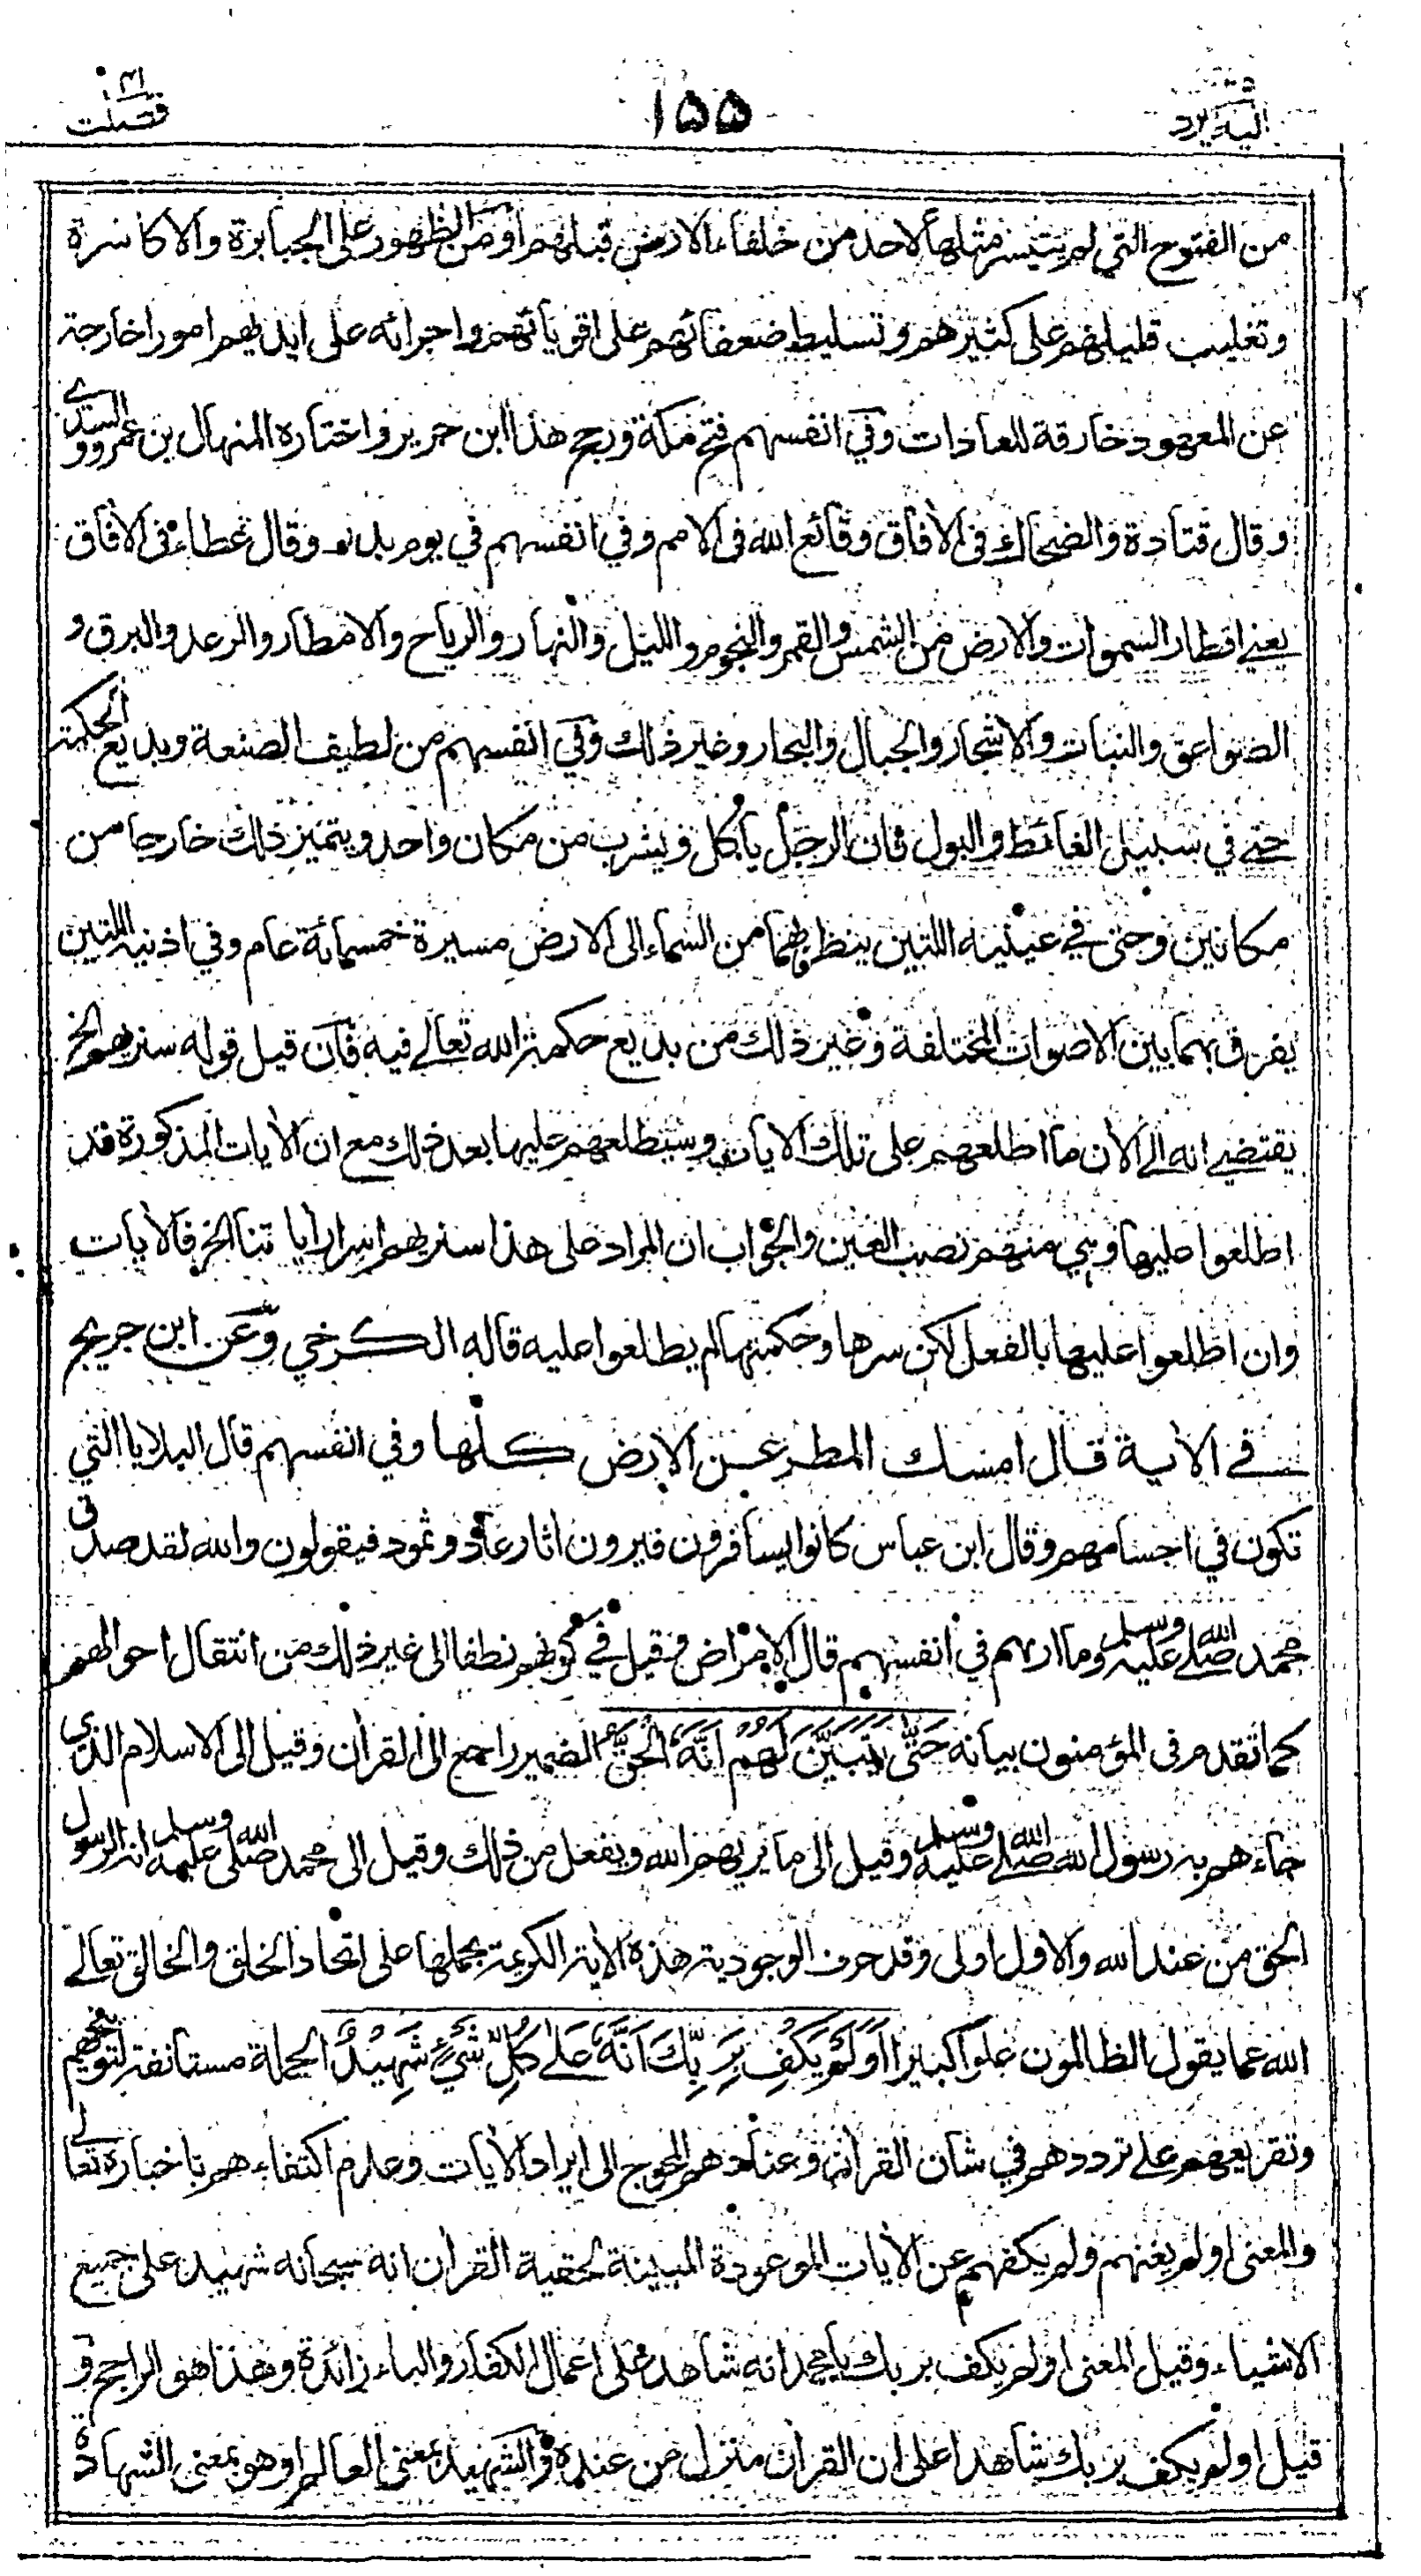 اليه يرد
١٥٥
فصلت ٤١
من الفتوح التي لم يتيسر مثلها لاحد من خلفاء الارض قبلهم او من الظهور على الجبابرة والاكاسرة
وتغليب قليلهم على كثيرهم وتسليط ضعفائهم على اقويائهم واجرائه على ايديهم امورا خارجة
عن المعهود خارقة للعادات وفي انفسهم فتح مكة ورجح هذا ابن جرير واختاره المنهال بن عمرو والسدي
وقال قتادة والضحاك في الأفاق وقائع الله في الامم وفي انفسهم في يوم بدر وقال عطاء في الأفاق
يعني اقطار السموات والارض من الشمس والقمر والنجوم والليل والنهار والرياح والامطار والرعد والبرق و
الصواعق والنبات والاشجار والجبال والبحار وغير ذلك وفي انفسهم من لطيف الصنعة وبديع الحكمة
حتى في سبيل الغائط والبول فان الرجل يأكل ويشرب من مكان واحد ويتميز ذلك خارجا من
مكانين وحتى في عينيه اللتين ينظر بهما من السماء الى الارض مسيرة خمسمائة عام وفي اذنيه اللتين
يفرق بهما بين الاصوات المختلفة وغير ذلك من بديع حكمة الله تعالى فيه فان قيل قوله سنريهم الخ
يقتضي انه الى الأن ما اطلعهم على تلك الأيات وسيطلعهم عليها بعد ذلك مع ان الأيات المذكورة قد
اطلعوا عليها وهي منهم نصب العين والجواب ان المراد على هذا سنريهم اسرار أياتنا الخ فالأيات
وان اطلعوا عليها بالفعل لكن سرها وحكمتها لم يطلعوا عليه قاله الكرخي وعن ابن جريج
في الأية قال امسك المطر عن الارض كلها وفي انفسهم قال البلايا التي
تكون في اجسامهم وقال ابن عباس كانوا يسافرون فيرون اثار عاد وثمود فيقولون والله لقد صدق
محمد صلى الله عليه وسلم وما اراهم في انفسهم قال الامراض وقيل في كونهم نطفا الى غير ذلك من انتقال احوالهم
كما تقدم في المؤمنون بيانه حَتَّى يَتَبَيَّنَ لَهُمْ اَنَّهُ الْحَقُّ الضمير راجع الى القرأن وقيل الى الاسلام الذي
جاءهم به رسول الله صلى الله عليه وسلم وقيل الى ما يريهم الله ويفعل من ذلك وقيل الى محمد صلى الله عليه وسلم انه الرسول
الحق من عند الله والاول اولى وقد حرف الوجودية هذه الأية الكريمة بحملها على اتحاد الخلق والخالق تعالى
الله عما يقول الظالمون علوا كبيرا اَوَلَمْ يَكْفِ بِرَبِّكَ اَنَّهُ عَلٰى كُلِّ شَيْءٍ شَهِيْدٌ الجملة مستانفة لتوبيخهم
وتقريعهم على ترددهم في شان القرأن وعنادهم المحوج الى ايراد الأيات وعدم اكتفاءهم باخباره تعالى
والمعنى اولم يغنهم ولم يكفهم عن الأيات الموعودة المبينة لحقية القرأن انه سبحانه شهيد على جميع
الاشياء وقيل المعنى اولم يكف بربك يا محمد انه شاهد على اعمال الكفار والباء زائدة وهذا هو الراجح و
قيل اولم يكف بربك شاهدا على ان القرأن منزل من عنده والشهيد بمعنى العالم او هو بمعنى الشهادة